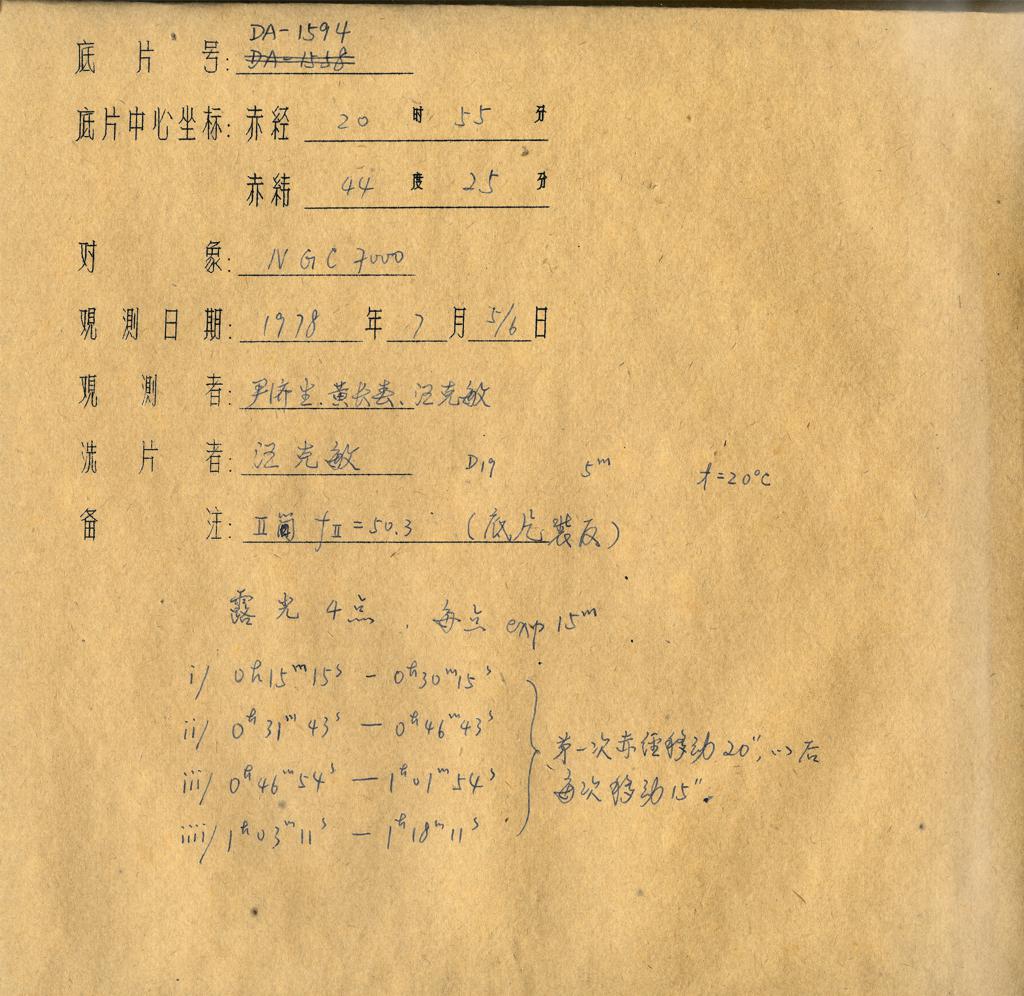 底片号: DA-1594
DA-1558
底片中心坐标: 赤经 20 时 55 分
赤纬 44 度 25 分
对象: NGC 7000
观测日期: 1978 年 7 月 5/6 日
观测者: 尹济生.黄长春.汪克敏
洗片者: 汪克敏 D19 5ᵐ t=20°C
备注: II筒 fII=50.3 (底片装反)
露光 4点. 每点 exp 15ᵐ
i/ 0ʰ15ᵐ15ˢ - 0ʰ30ᵐ15ˢ
ii/ 0ʰ31ᵐ43ˢ — 0ʰ46ᵐ43ˢ
iii/ 0ʰ46ᵐ54ˢ — 1ʰ01ᵐ54ˢ
iiii/ 1ʰ03ᵐ11ˢ — 1ʰ18ᵐ11ˢ
第一次赤经移动20", 以后
每次移动15".